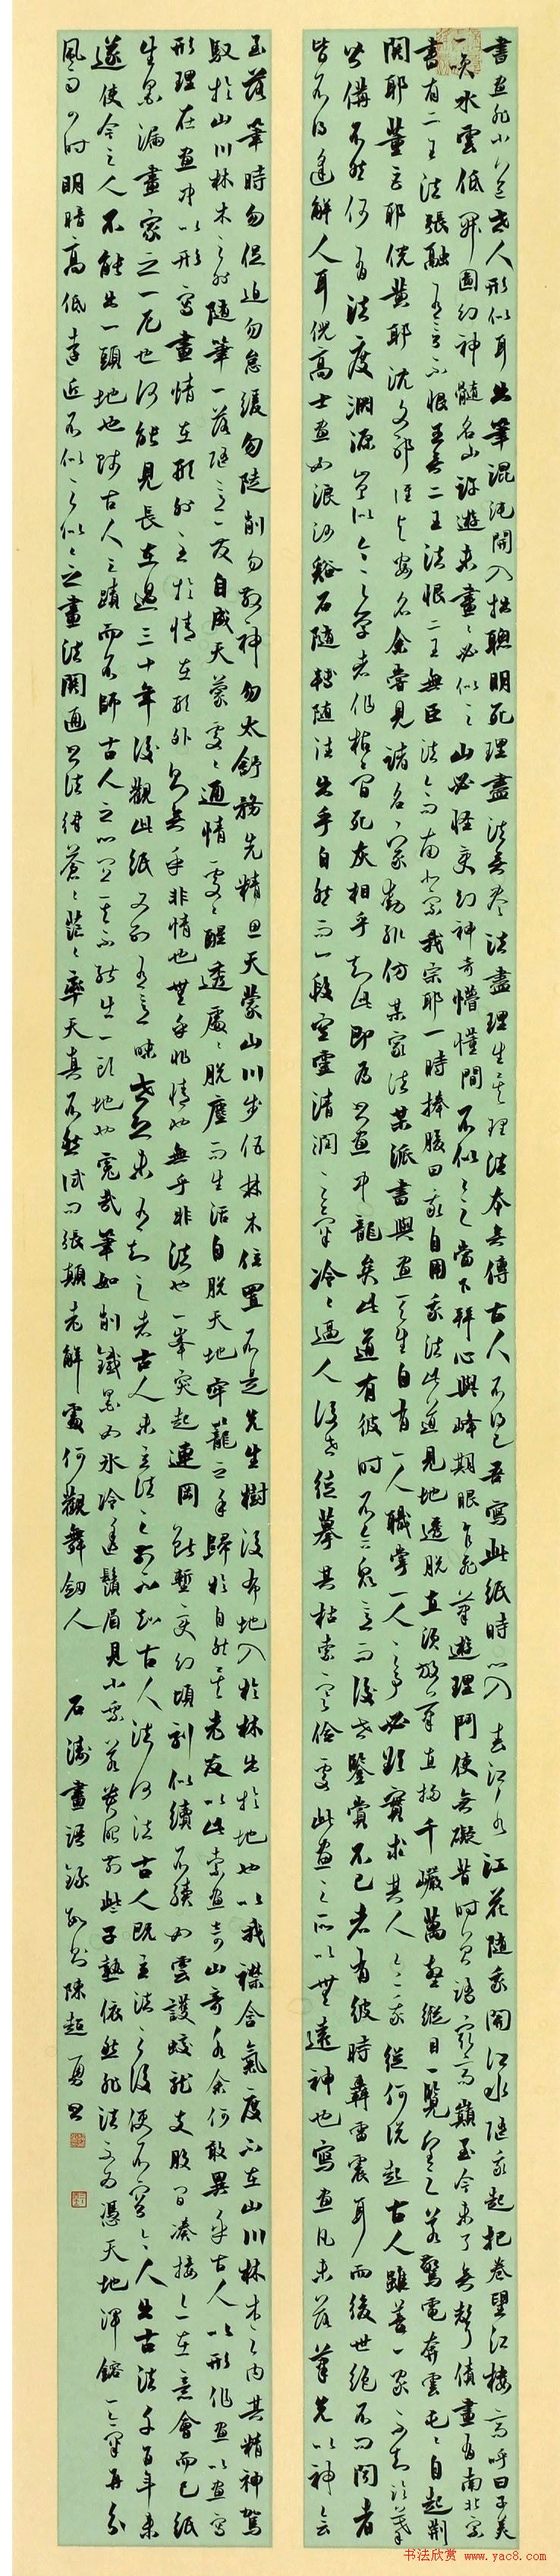 書畫非小道世人形似耳出筆混沌開入拙聰明死理盡法無盡法盡理生矣理法本無傳古人不得已吾寫此紙時心入春江水江花隨我開江水隨我起把卷望江樓高呼曰子美
一笑水雲低開圖幻神髓名山許遊未畫畫必似之山必怪變幻神奇懵懂間不似似之當下拜心與峰期眼乍飛筆遊理鬥使無礙昔時曾踏最高巔至今未了無聲債畫有南北宗
書有二王法張融有言不恨臣無二王法恨二王無臣法今問南北宗我宗耶一時捧腹曰我自用我法此道見地透脫直須放筆直掃千巖萬壑縱目一覽望之若驚電奔雲屯屯自起荊
關耶董巨耶倪黃耶沈文耶誰與安名余嘗見諸名家動輒仿某家法某派書與畫天生自有一人職掌一人之事必欲實求其人令我從何說起古人雖善一家不知臨摹
皆備不然何有法度淵源豈似今之學者作枯骨死灰相乎知此即為書畫中龍矣此道有彼時不合眾意而後世鑒賞不已者有彼時轟雷震耳而後世絕不聞問者
皆不得逢解人耳倪高士畫如浪沙谿石隨轉隨注出乎自然而一段空靈清潤之氣冷冷逼人後世徒摹其枯索寒儉處此畫之所以無遠神也寫畫凡未落筆先以神會
至落筆時勿促迫勿怠緩勿陡削勿散神勿太舒務先精思天蒙山川步伍林木位置不是先生樹後布地入於林出於地也以我襟含氣度不在山川林木之內其精神駕
馭於山川林木之外隨筆一落隨意一發自成天蒙處處通情處處醒透處處脫塵而生活自脫天地牢籠之手歸於自然矣老友以此索畫奇山奇水余何敢異乎古人以形作畫以畫寫
形理在畫中以形寫畫情在形外至於情在形外則無乎非情也無乎非情也無乎非法也一峯突起連岡斷塹變幻頃刻似續不續如雲護蛟龍支股間湊接亦在意會而已紙
生墨漏畫家之一厄也何能見長在過三十年後觀此紙又別有意味世亦未有知之者古人未立法之前不知古人法何法古人既立法之後便不容今人出古法千百年來
遂使今之人不能出一頭地也師古人之蹟而不師古人之心宜其不能出一頭地也冤哉筆如削鐵墨如冰冷透鬚眉見小乘若貧眼前些子熱依然非法之為憑天地渾鎔一氣再分
風雨四時明暗高低遠近不似之似似之畫法關通書法律蒼蒼茫茫率天真不然試問張顛老解處何觀舞劍人 石濤畫語錄 陳超 書
書法欣賞 www.yac8.com